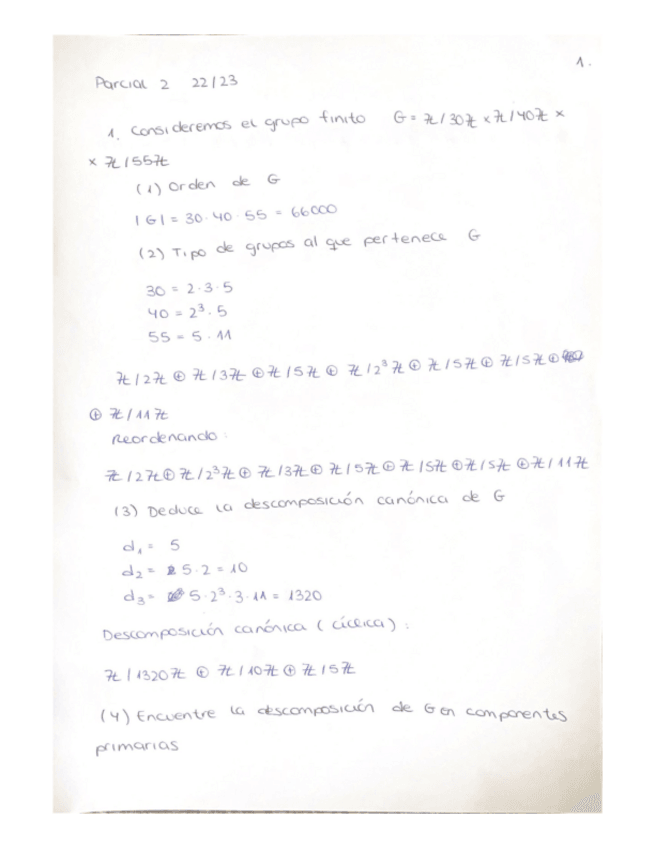 1.
Parcial 2 22/23
1. Consideremos el grupo finito G = ℤ/30ℤ × ℤ/40ℤ ×
× ℤ/55ℤ
(1) Orden de G
|G| = 30·40·55 = 66000
(2) Tipo de grupos al que pertenece G
30 = 2·3·5
40 = 2³·5
55 = 5·11
ℤ/2ℤ ⊕ ℤ/3ℤ ⊕ ℤ/5ℤ ⊕ ℤ/2³ℤ ⊕ ℤ/5ℤ ⊕ ℤ/5ℤ ⊕
⊕ ℤ/11ℤ
Reordenando:
ℤ/2ℤ ⊕ ℤ/2³ℤ ⊕ ℤ/3ℤ ⊕ ℤ/5ℤ ⊕ ℤ/5ℤ ⊕ ℤ/5ℤ ⊕ ℤ/11ℤ
(3) Deduce la descomposición canónica de G
d₁ = 5
d₂ = 5·2 = 10
d₃ = 5·2³·3·11 = 1320
Descomposición canónica (cíclica):
ℤ/1320ℤ ⊕ ℤ/10ℤ ⊕ ℤ/5ℤ
(4) Encuentre la descomposición de G en componentes
primarias